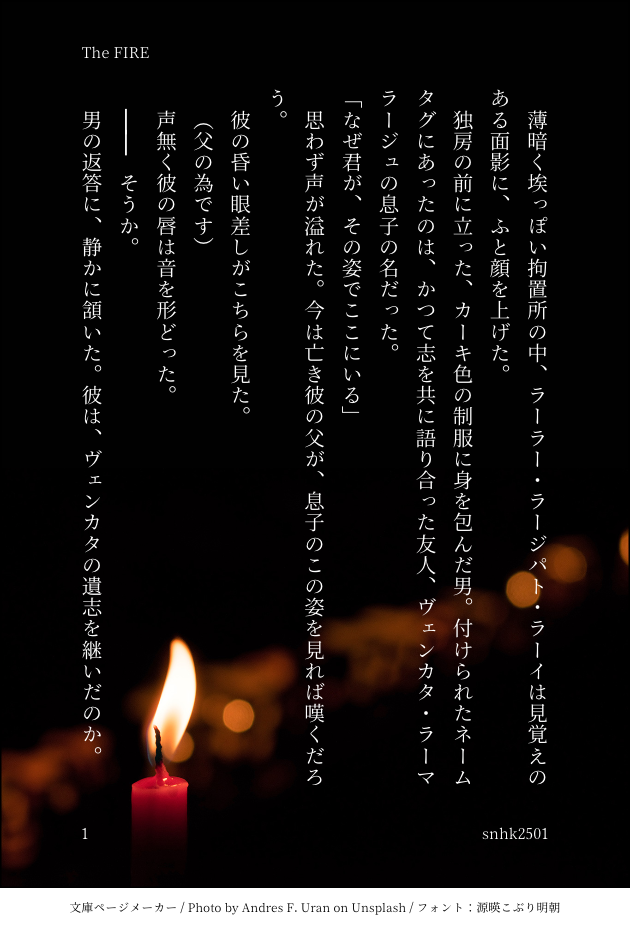 The FIRE
　薄暗く埃っぽい拘置所の中、ラーラー・ラージパト・ラーイは見覚えの
ある面影に、ふと顔を上げた。
　独房の前に立った、カーキ色の制服に身を包んだ男。付けられたネーム
タグにあったのは、かつて志を共に語り合った友人、ヴェンカタ・ラーマ
ラージュの息子の名だった。
「なぜ君が、その姿でここにいる」
　思わず声が溢れた。今は亡き彼の父が、息子のこの姿を見れば嘆くだろ
う。
　彼の昏い眼差しがこちらを見た。
（父の為です）
　声無く彼の唇は音を形どった。
　――　そうか。
　男の返答に、静かに頷いた。彼は、ヴェンカタの遺志を継いだのか。
1
snhk2501
文庫ページメーカー / Photo by Andres F. Uran on Unsplash / フォント：源暎こぶり明朝